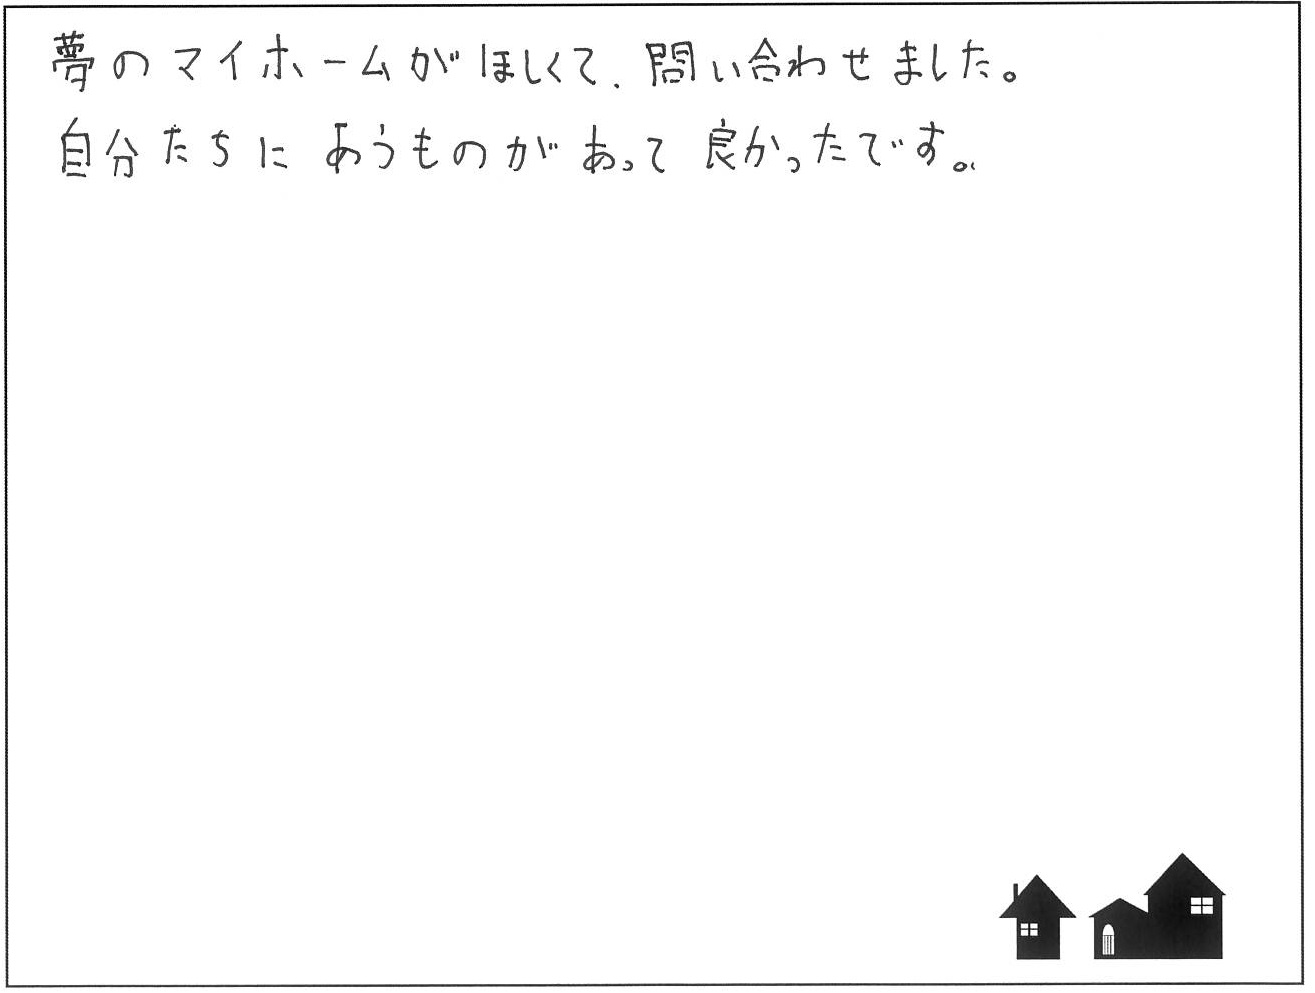 夢のマイホームがほしくて、問い合わせました。
自分たちにあうものがあって良かったです。